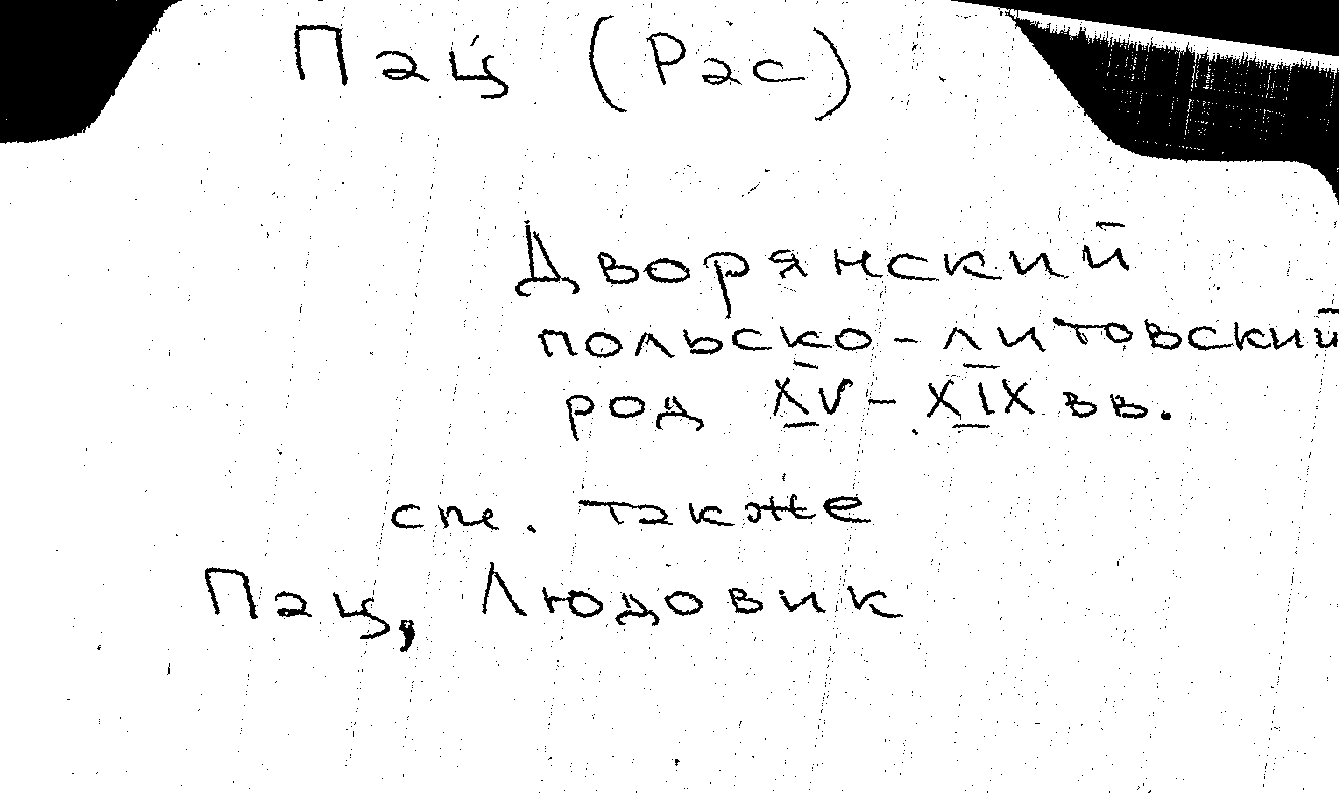 Пац (Pac)
Дворянский
польско-литовский
род XV-XIX вв.
см. также
Пац, Людовик